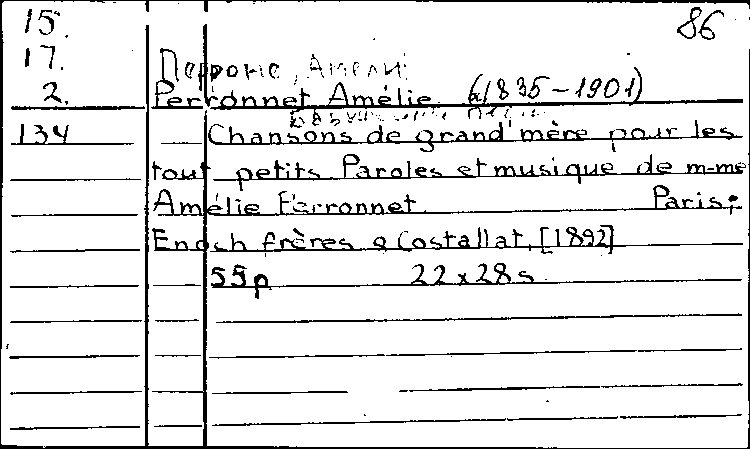 15. 86
17.
Перроне, Амели
2. Perronnet Amélie (1835-1901)
134 Chansons de grand'mère pour les
tout petits Paroles et musique de m-me
Amélie Perronnet Paris;
Enoch frères & Costallat, [1892]
55p 22x28s.